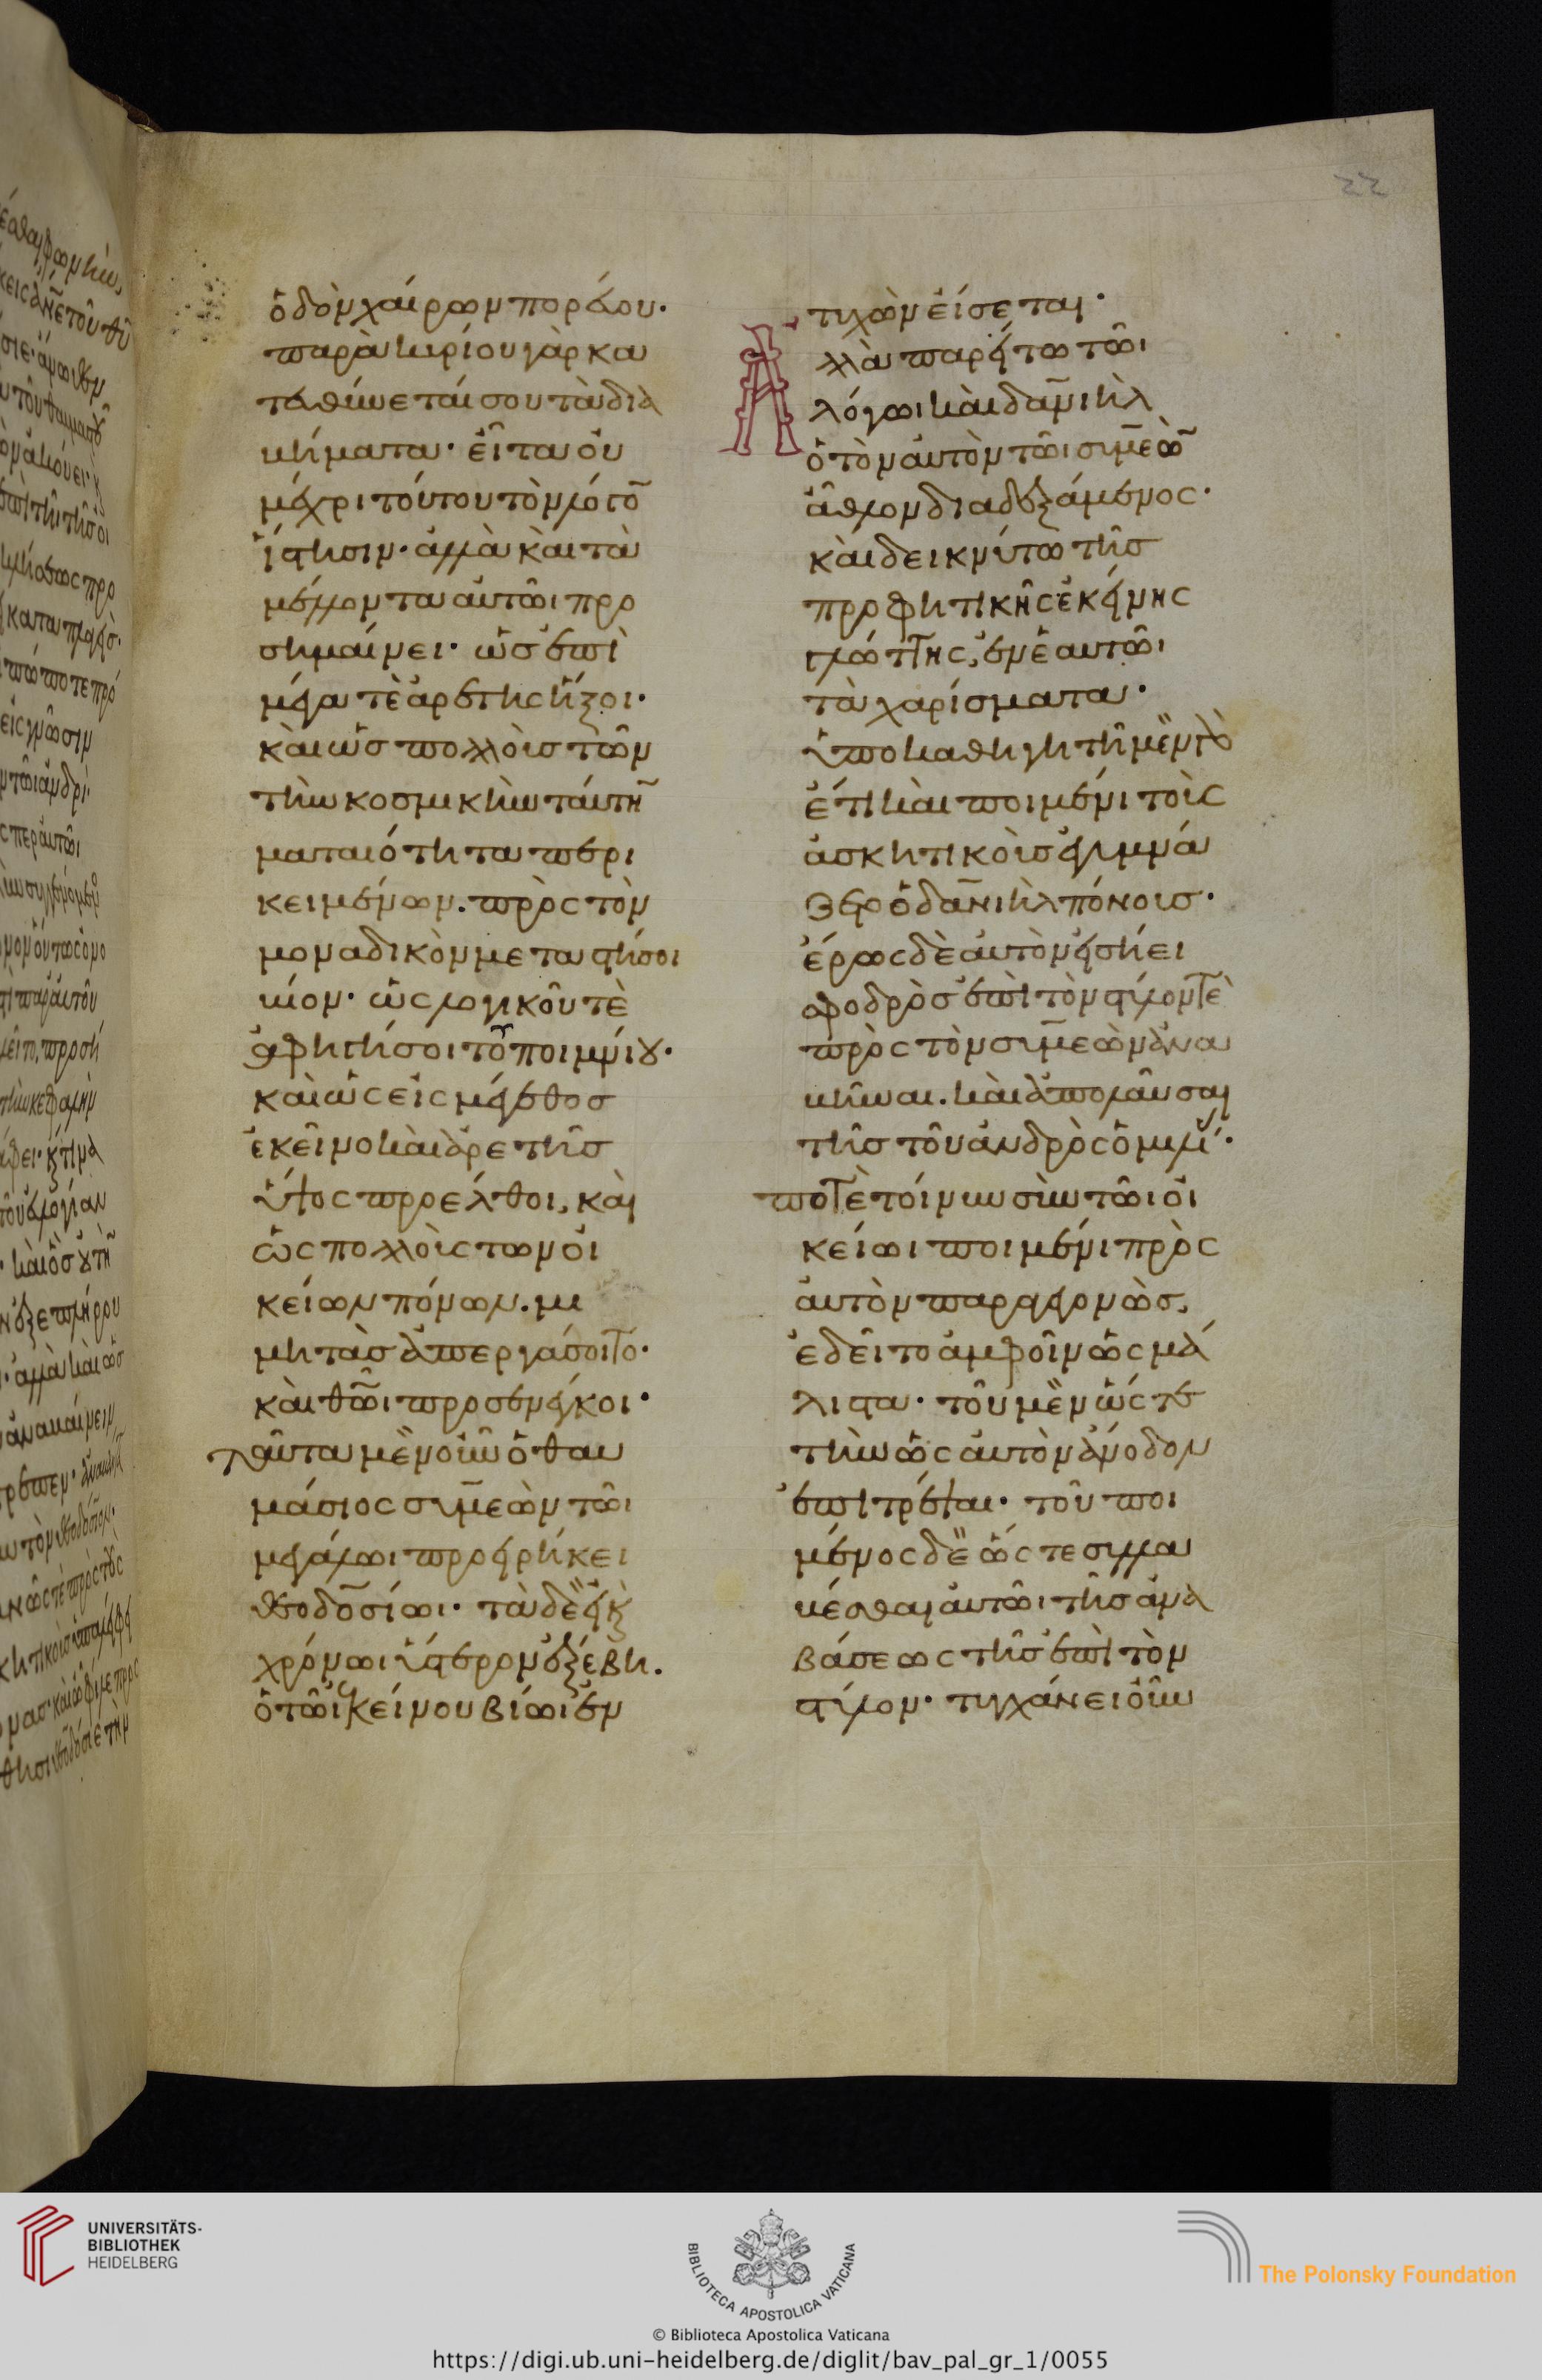 ὁδὸν χαίρων πορεύου·
παρὰ κυρίου γὰρ κα
τευθύνεταί σου τὰ δια
βήματα· εἶτα οὐ
μέχρι τούτου τὸν λόγο̄
ἵστησιν· ἀλλὰ καὶ τὰ
μέλλοντα αὐτῶι προ
σημαίνει· ὡς ἐπὶ
μέγα τὲ ἀρετῆς ἥξοι·
καὶ ὡς πολλοὺς τῶν
τὴν κοσμικὴν ταύτη̄
ματαιότητα περι
κειμένων. πρὸς τὸν
μοναδικὸν μεταστήσοι
βίον· ὡς λογικοῦ τὲ
ἀφηγήσοιτο ποιμνίου·
καὶ ὡς εἰς μέγεθος
ἐκεῖνο καὶ ἀρετῆς
ὕψος προέλθοι, καὶ
ὡς πολλοὺς τῶν οἰ
κείων πόνων. μι
μητὰς ἀπεργάσοιτο·
καὶ θ͞ωι προσενέγκοι·
Ταῦτα μὲν οὖν ὁ θαυ
μάσιος συμεὼν τῶι
μεγάλωι προειρήκει
θεοδοσίωι· τὰ δὲ εἰ κ̀
χρόνωι ὕστερον ἐξέβη.
ὁ τῶι ἐκείνου βίωι ἐν
τυχὼν εἴσεται·
Ἀλλὰ παρείτω τῶι
λόγωι καὶ δανιὴλ
ὁ τὸν αὐτὸν τῶι συμεὼ̄
ἆθλον διαδεξάμενος·
καὶ δεικνύτω τῆς
προφητικῆς ἐκείνης
γλώττης, ἐν ἑαυτῶι
τὰ χαρίσματα·
ὑπὸ καθηγητῆ μὲν γὰρ
ἔτι καὶ ποιμένι τοῖς
ἀσκητικοῖς ἐγυμνά
ζετο ὁ δανιὴλ πόνοις·
ἔρως δὲ αὐτὸν εἰσήει
σφοδρὸς ἐπὶ τὸν στῦλον τὲ
πρὸς τὸν συμεὼν ἀνα
βῆναι. καὶ ἀπολαῦσαι
τῆς τοῦ ἀνδρὸς ὁμιλί·
ποτὲ τοίνυν σὺν τῶι οἰ
κείωι ποιμένι πρὸς
αὐτὸν παραγεγονὼς,
ἐδεῖτο ἀμφοῖν ὡς μά
λιστα· τοῦ μὲν ὥστε
τὴν ὡς αὐτὸν ἄνοδον
ἐπιτρέψαι· τοῦ ποι
μένος δὲ ὥστε συλλα
βέσθαι αὐτῶι τῆς ἀνα
βάσεως τῆς ἐπὶ τὸν
στῦλον· τυγχάνει οὖν
22
UNIVERSITÄTS-
BIBLIOTHEK
HEIDELBERG
BIBLIOTECA APOSTOLICA VATICANA
The Polonsky Foundation
© Biblioteca Apostolica Vaticana
https://digi.ub.uni-heidelberg.de/diglit/bav_pal_gr_1/0055